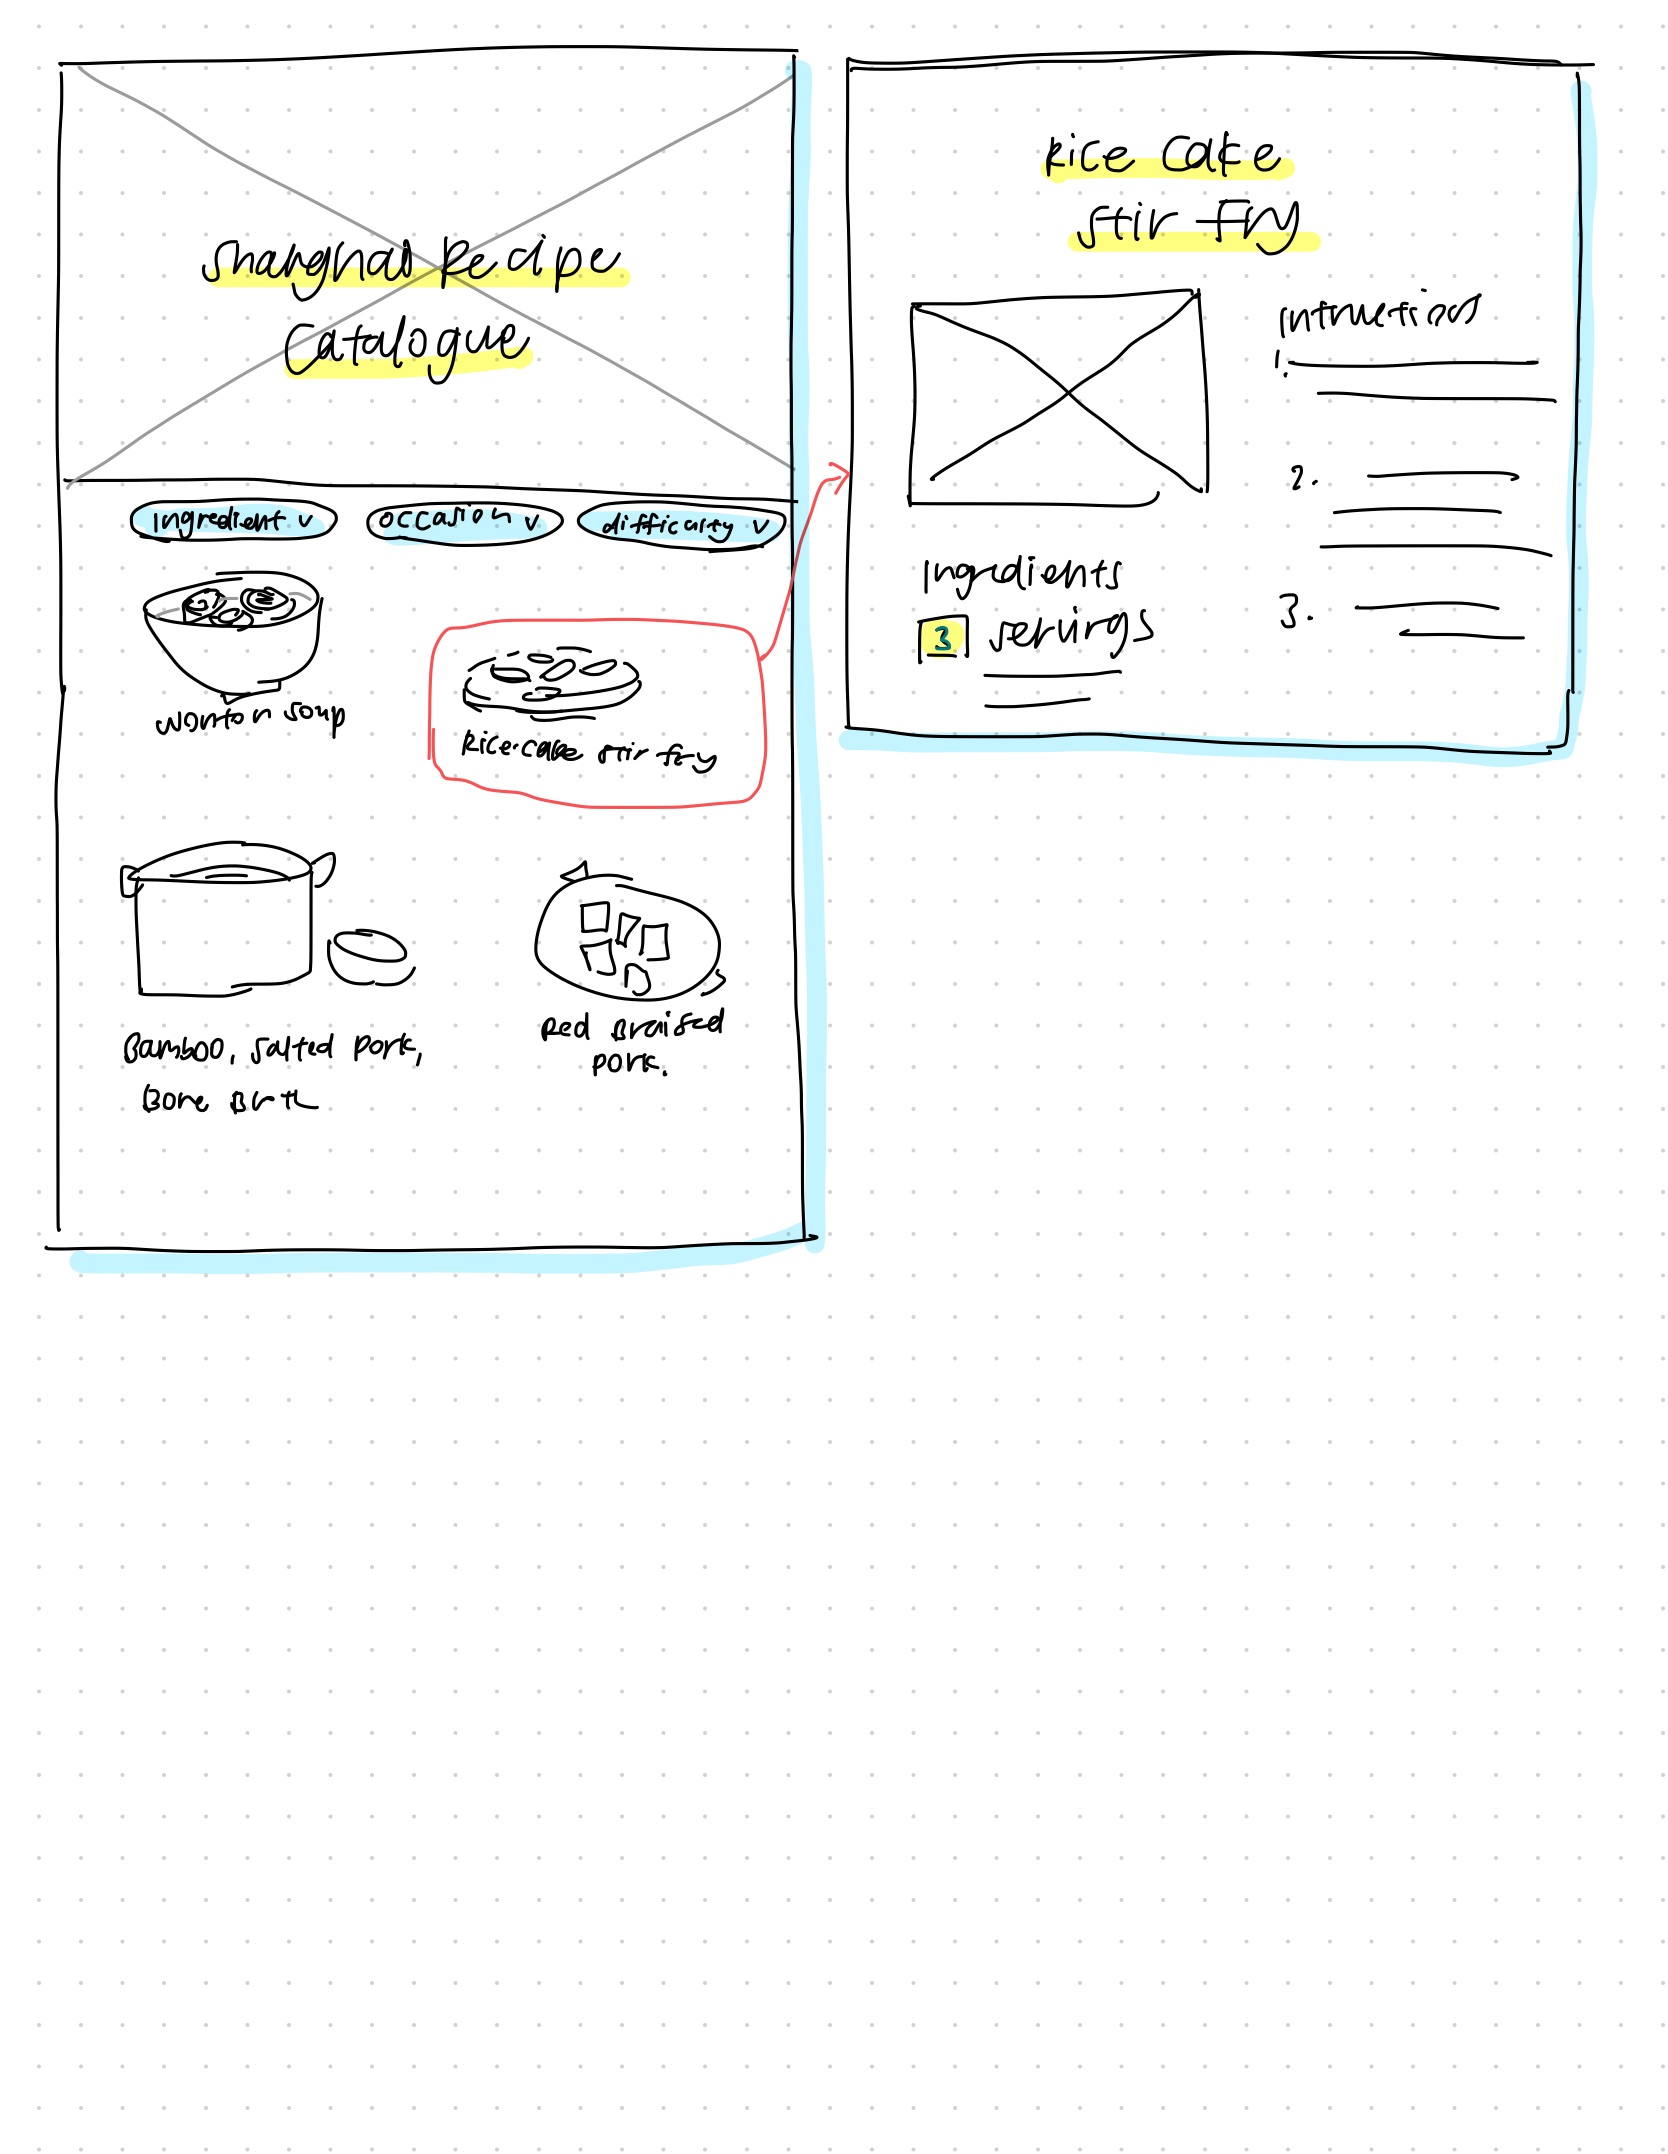 Shanghai Recipe
Catalogue
Ingredient v
occasion v
difficulty v
wonton soup
Rice cake stir fry
Bamboo, Salted Pork,
Bone Broth
Red Braised
Pork.
Rice Cake
Stir Fry
Intructions
1.
2.
3.
Ingredients
3 servings